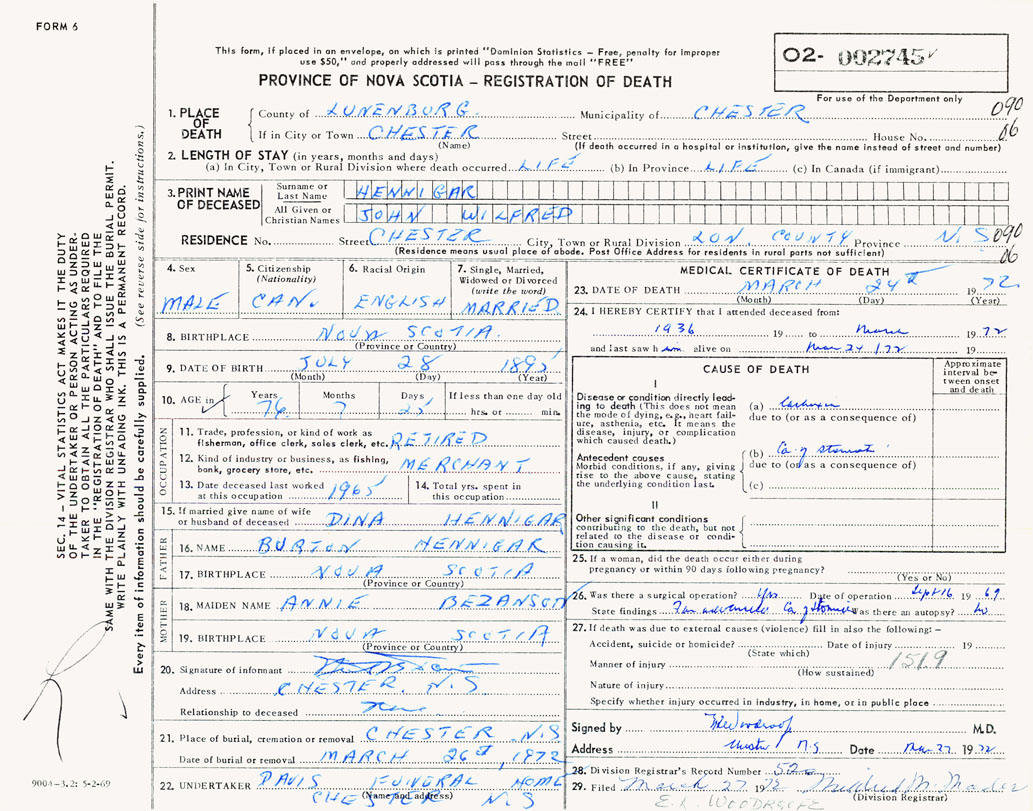 FORM 6
This form, if placed in an envelope, on which is printed "Dominion Statistics – Free, penalty for improper
use $50," and properly addressed will pass through the mail "FREE"
PROVINCE OF NOVA SCOTIA – REGISTRATION OF DEATH
O2- 002745
For use of the Department only
090
06
1. PLACE OF DEATH
County of LUNENBURG. Municipality of CHESTER
If in City or Town CHESTER Street House No.
(Name) (If death occurred in a hospital or institution, give the name instead of street and number)
2. LENGTH OF STAY (in years, months and days)
(a) In City, Town or Rural Division where death occurred LIFE (b) In Province LIFE (c) In Canada (if immigrant)
3. PRINT NAME OF DECEASED
Surname or Last Name HENNIGAR
All Given or Christian Names JOHN WILFRED
RESIDENCE No. Street CHESTER City, Town or Rural Division LUN. COUNTY Province N.S 090
(Residence means usual place of abode. Post Office Address for residents in rural parts not sufficient) 06
4. Sex MALE
5. Citizenship (Nationality) CAN.
6. Racial Origin ENGLISH
7. Single, Married, Widowed or Divorced (write the word) MARRIED
8. BIRTHPLACE NOVA SCOTIA
(Province or Country)
9. DATE OF BIRTH JULY 28 1895
(Month) (Day) (Year)
10. AGE in Years 76 Months 7 Days 25 If less than one day old
hrs. or min.
OCCUPATION
11. Trade, profession, or kind of work as
fisherman, office clerk, sales clerk, etc. RETIRED
12. Kind of industry or business, as fishing,
bank, grocery store, etc. MERCHANT
13. Date deceased last worked
at this occupation 1965
14. Total yrs. spent in
this occupation
15. If married give name of wife
or husband of deceased DINA HENNIGAR
FATHER
16. NAME BURTON HENNIGAR
17. BIRTHPLACE NOVA SCOTIA
(Province or Country)
MOTHER
18. MAIDEN NAME ANNIE BEZANSON
19. BIRTHPLACE NOVA SCOTIA
(Province or Country)
20. Signature of informant
Address CHESTER, N.S
Relationship to deceased
21. Place of burial, cremation or removal CHESTER N.S
Date of burial or removal MARCH 26st, 1972
22. UNDERTAKER DAVIS FUNERAL HOME
(Name and address)
CHESTER N.S
MEDICAL CERTIFICATE OF DEATH
23. DATE OF DEATH MARCH 24th 1972
(Month) (Day) (Year)
24. I HEREBY CERTIFY that I attended deceased from:
1936 19 to March 1972
and last saw him alive on Mar 24 /72 19
CAUSE OF DEATH
Approximate interval between onset and death
I
Disease or condition directly leading
to death (This does not mean
the mode of dying, e.g., heart failure,
asthenia, etc. It means the
disease, injury, or complication
which caused death.)
(a) Cachexia
due to (or as a consequence of)
Antecedent causes
Morbid conditions, if any, giving
rise to the above cause, stating
the underlying condition last.
(b) Ca. of stomach
due to (or as a consequence of)
(c)
II
Other significant conditions
contributing to the death, but not
related to the disease or condition
causing it.
25. If a woman, did the death occur either during
pregnancy or within 90 days following pregnancy?
(Yes or No)
26. Was there a surgical operation? Yes Date of operation Sept 16 1969
State findings Far advanced Ca. of stomach Was there an autopsy? No
27. If death was due to external causes (violence) fill in also the following: –
Accident, suicide or homicide? Date of injury 19
(State which)
1519
Manner of injury
(How sustained)
Nature of injury
Specify whether injury occurred in industry, in home, or in public place
Signed by M.D.
Address Chester N.S Date Mar. 27. 1972
28. Division Registrar's Record Number 52
29. Filed March 27 1972 Mildred M. Mader
(Division Registrar)
E. L. WOODROOFE
SEC. 14 – VITAL STATISTICS ACT MAKES IT THE DUTY
OF THE UNDERTAKER OR PERSON ACTING AS UNDERTAKER
TO OBTAIN ALL THE PARTICULARS REQUIRED
IN THE "REGISTRATION OF DEATH" AND TO FILE THE
SAME WITH THE DIVISION REGISTRAR WHO SHALL ISSUE THE BURIAL PERMIT.
WRITE PLAINLY WITH UNFADING INK. THIS IS A PERMANENT RECORD.
Every item of information should be carefully supplied. (See reverse side for instructions.)
9004-3.2: 5-2-69